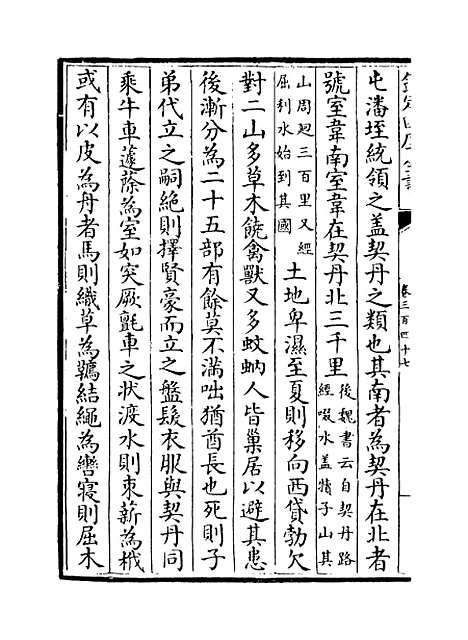 欽定四庫全書
卷三百四十七
屯潘垤統領之盖契丹之類也其南者為契丹在北者
號室韋南室韋在契丹北三千里後魏書云自契丹路經啜水盖犗子山其
山周廻三百里又經屈利水始到其國土地卑濕至夏則移向西貸勃欠
對二山多草木饒禽獸又多蚊蚋人皆巢居以避其患
後漸分為二十五部有餘莫不滿咄猶酋長也死則子
弟代立之嗣絶則擇賢豪而立之盤髮衣服與契丹同
乘牛車蘧蒢為室如突厥氊車之狀渡水則束薪為栰
或有以皮為舟者馬則織草為韉結繩為轡寢則屈木